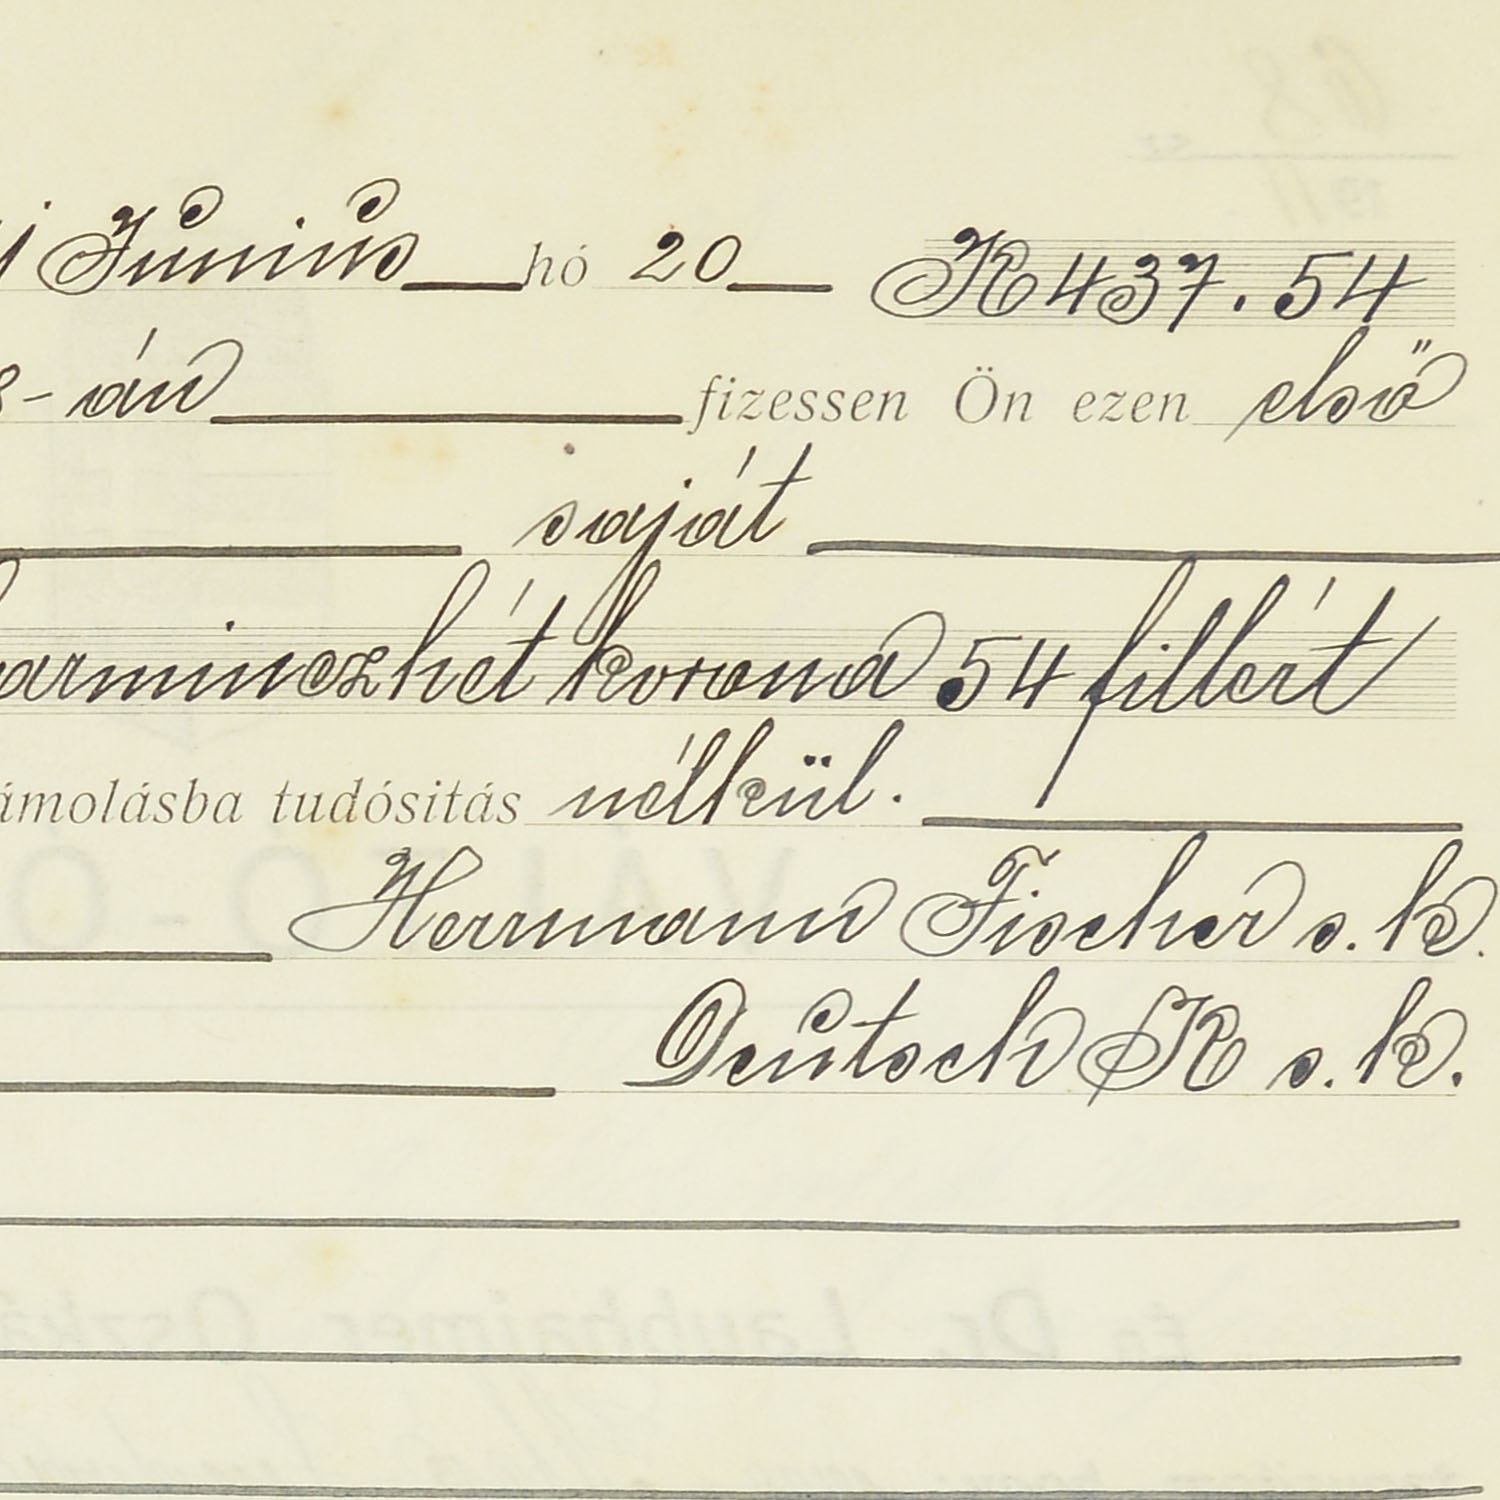 Június hó 20 K 437.54
8-án fizessen Ön ezen első
saját
harminczhét korona 54 fillért
ámolásba tudósitás nélkül.
Herrmann Fischer s. k.
Deutsch K s. k.
VÁLTÓ-Ó
Én Dr. Laubhaimer Oszká